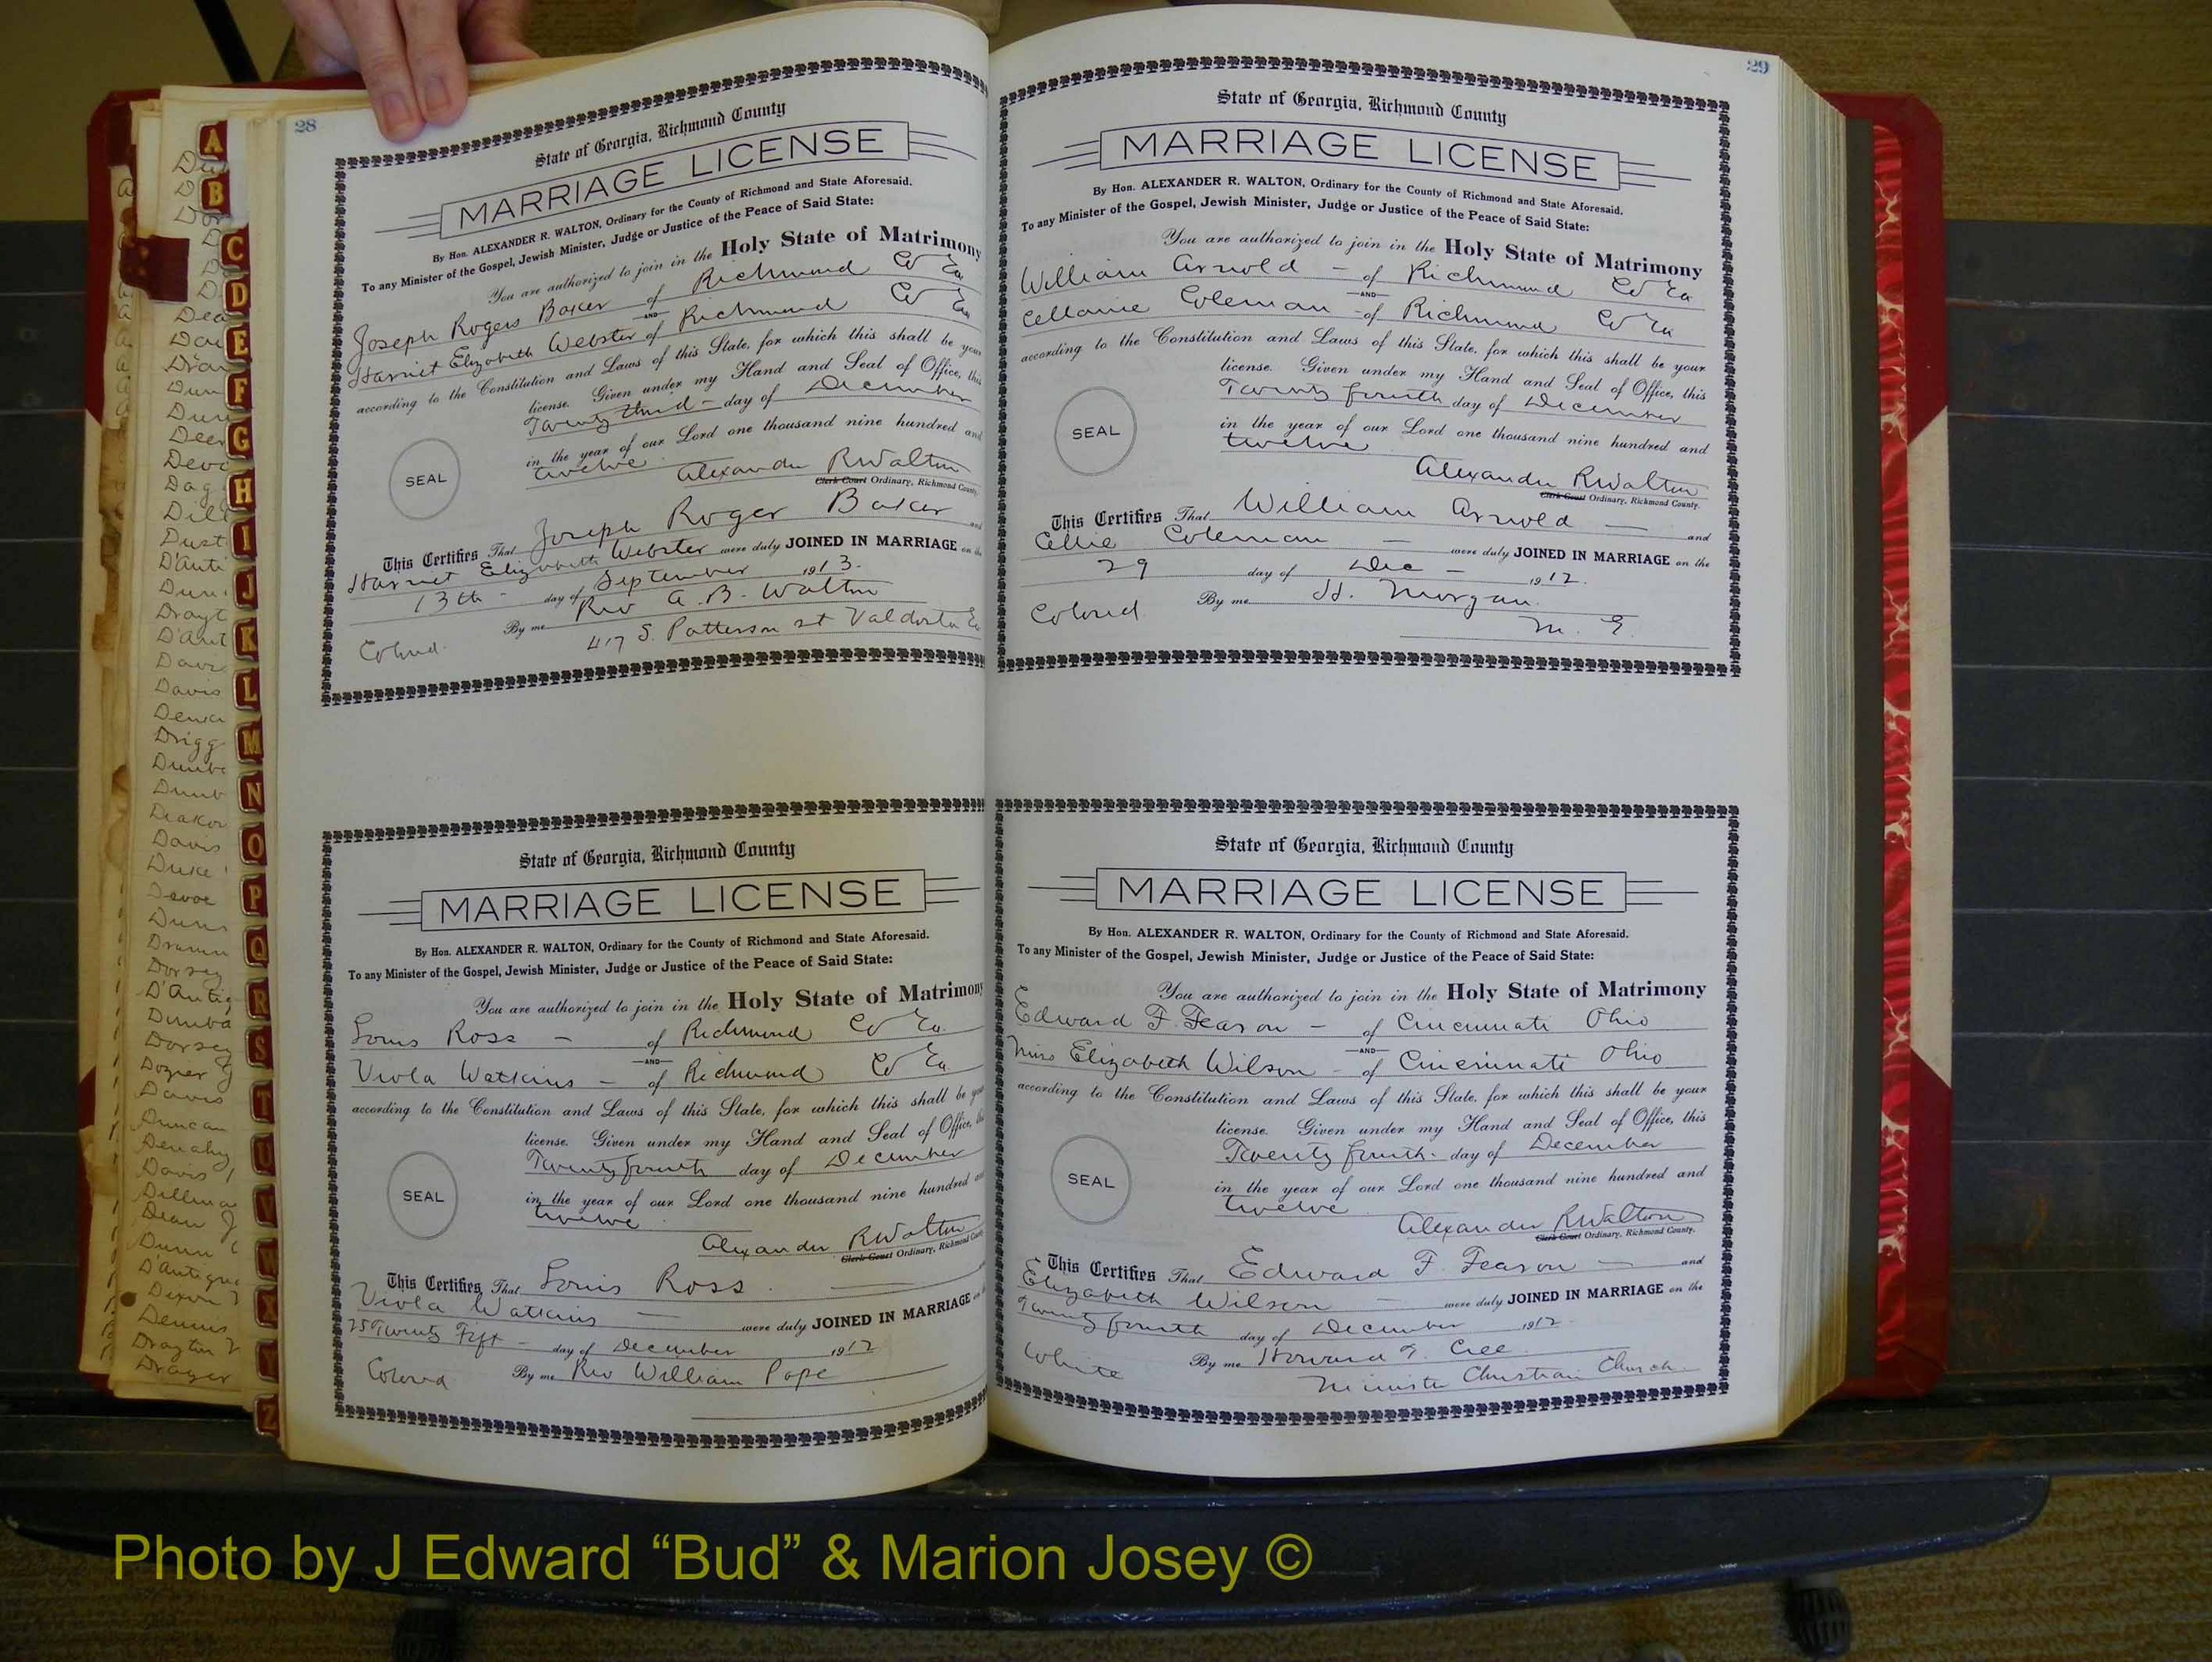 28
State of Georgia, Richmond County
MARRIAGE LICENSE
By Hon. ALEXANDER R. WALTON, Ordinary for the County of Richmond and State Aforesaid.
To any Minister of the Gospel, Jewish Minister, Judge or Justice of the Peace of Said State:
You are authorized to join in the Holy State of Matrimony
Joseph Rogers Baker of Richmond Co Ga
AND
Harriet Elizabeth Webster of Richmond Co Ga
according to the Constitution and Laws of this State, for which this shall be your
license. Given under my Hand and Seal of Office, this
Twenty third - day of December
in the year of our Lord one thousand nine hundred and
twelve
SEAL
Alexander R Walton
Clerk Court Ordinary, Richmond County.
This Certifies That Joseph Roger Baker and
Harriet Elizabeth Webster were duly JOINED IN MARRIAGE on the
13th - day of September 1913.
By me Rev A. B. Walton
Colored. 417 S. Patterson st Valdosta Ga
State of Georgia, Richmond County
MARRIAGE LICENSE
By Hon. ALEXANDER R. WALTON, Ordinary for the County of Richmond and State Aforesaid.
To any Minister of the Gospel, Jewish Minister, Judge or Justice of the Peace of Said State:
You are authorized to join in the Holy State of Matrimony
Louis Ross - of Richmond Co Ga.
AND
Viola Watkins - of Richmond Co Ga.
according to the Constitution and Laws of this State, for which this shall be your
license. Given under my Hand and Seal of Office, this
Twenty fourth day of December
in the year of our Lord one thousand nine hundred and
twelve
SEAL
Alexander R Walton
Clerk Court Ordinary, Richmond County
This Certifies That Louis Ross.
Viola Watkins were duly JOINED IN MARRIAGE on
25 Twenty Fift - day of December 1912
Colored By me Rev William Pope
29
State of Georgia, Richmond County
MARRIAGE LICENSE
By Hon. ALEXANDER R. WALTON, Ordinary for the County of Richmond and State Aforesaid.
To any Minister of the Gospel, Jewish Minister, Judge or Justice of the Peace of Said State:
You are authorized to join in the Holy State of Matrimony
William Arnold - of Richmond Co Ga
AND
Coleman - of Richmond Co Ga
according to the Constitution and Laws of this State, for which this shall be your
license. Given under my Hand and Seal of Office, this
Twenty fourth day of December
in the year of our Lord one thousand nine hundred and
twelve
SEAL
Alexander R Walton
Clerk Court Ordinary, Richmond County.
This Certifies That William Arnold
and
Cellie Coleman - were duly JOINED IN MARRIAGE on the
29 day of Dec - 1912.
Colored. By me H. Morgan.
M. G.
State of Georgia, Richmond County
MARRIAGE LICENSE
By Hon. ALEXANDER R. WALTON, Ordinary for the County of Richmond and State Aforesaid.
To any Minister of the Gospel, Jewish Minister, Judge or Justice of the Peace of Said State:
You are authorized to join in the Holy State of Matrimony
Edward F. Fearon - of Cincinnati Ohio
AND
Miss Elizabeth Wilson - of Cincinnati Ohio
according to the Constitution and Laws of this State, for which this shall be your
license. Given under my Hand and Seal of Office, this
Twenty fourth - day of December
in the year of our Lord one thousand nine hundred and
twelve
SEAL
Alexander R Walton
Clerk Court Ordinary, Richmond County.
This Certifies That Edward F. Fearon - and
Elizabeth Wilson - were duly JOINED IN MARRIAGE on the
Twenty fourth day of December 1912.
White By me Howard T. Cree.
Minister Christian Church.
A
B
C
D
E
F
G
H
I
J
K
L
M
N
O
P
Q
R
S
T
U
V
W
X
Y
Z
Davis
Duke
Devoe
Dorsey
Dorsey
Dozier
Davis
Duncan
Davis
Dean J
Dunn
Dennis
Photo by J Edward “Bud” & Marion Josey ©